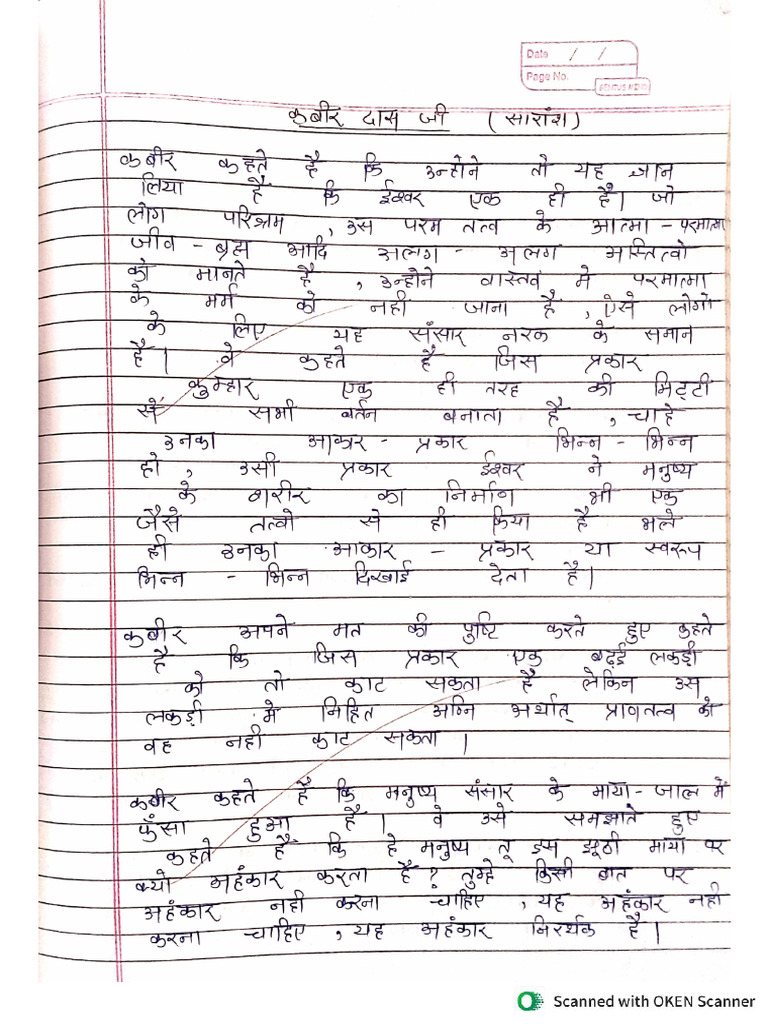 Date / /
Page No.
कबीर दास जी (सारांश)
कबीर कहते है कि उन्होने तो यह जान
लिया है कि ईश्वर एक ही है। जो
लोग परिश्रम , उस परम तत्व के आत्मा - परमात्मा
जीव - ब्रह्म आदि अलग - अलग अस्तित्वो
को मानते है , उन्होने वास्तव मे परमात्मा
के मर्म को नही जाना है , ऐसे लोगो
के लिए यह संसार नरक के समान
है। वे कहते है जिस प्रकार
कुम्हार एक ही तरह की मिट्टी
सें सभी बर्तन बनाता है , चाहे
उनका आकार - प्रकार भिन्न - भिन्न
हो , उसी प्रकार ईश्वर ने मनुष्य
के शरीर का निर्माण भी एक
जैसे तत्वो से ही किया है भले
ही उनका आकार - प्रकार या स्वरूप
भिन्न - भिन्न दिखाई देता है।
कबीर अपने मत की पुष्टि करते हुए कहते
है कि जिस प्रकार एक बढ़ई लकड़ी
को तो काट सकता है लेकिन उस
लकड़ी मे निहित अग्नि अर्थात् प्राणतत्व को
वह नही काट सकता ।
कबीर कहते है कि मनुष्य संसार के माया - जाल में
फुँसा हुआ है। वे उसे समझाते हुए
कहते है कि हे मनुष्य तू इस झूठी माया पर
क्यो अहंकार करता है? तुम्हे किसी बात पर
अहंकार नही करना चाहिए , यह अहंकार नही
करना चाहिए , यह अहंकार निरर्थक है।
Scanned with OKEN Scanner